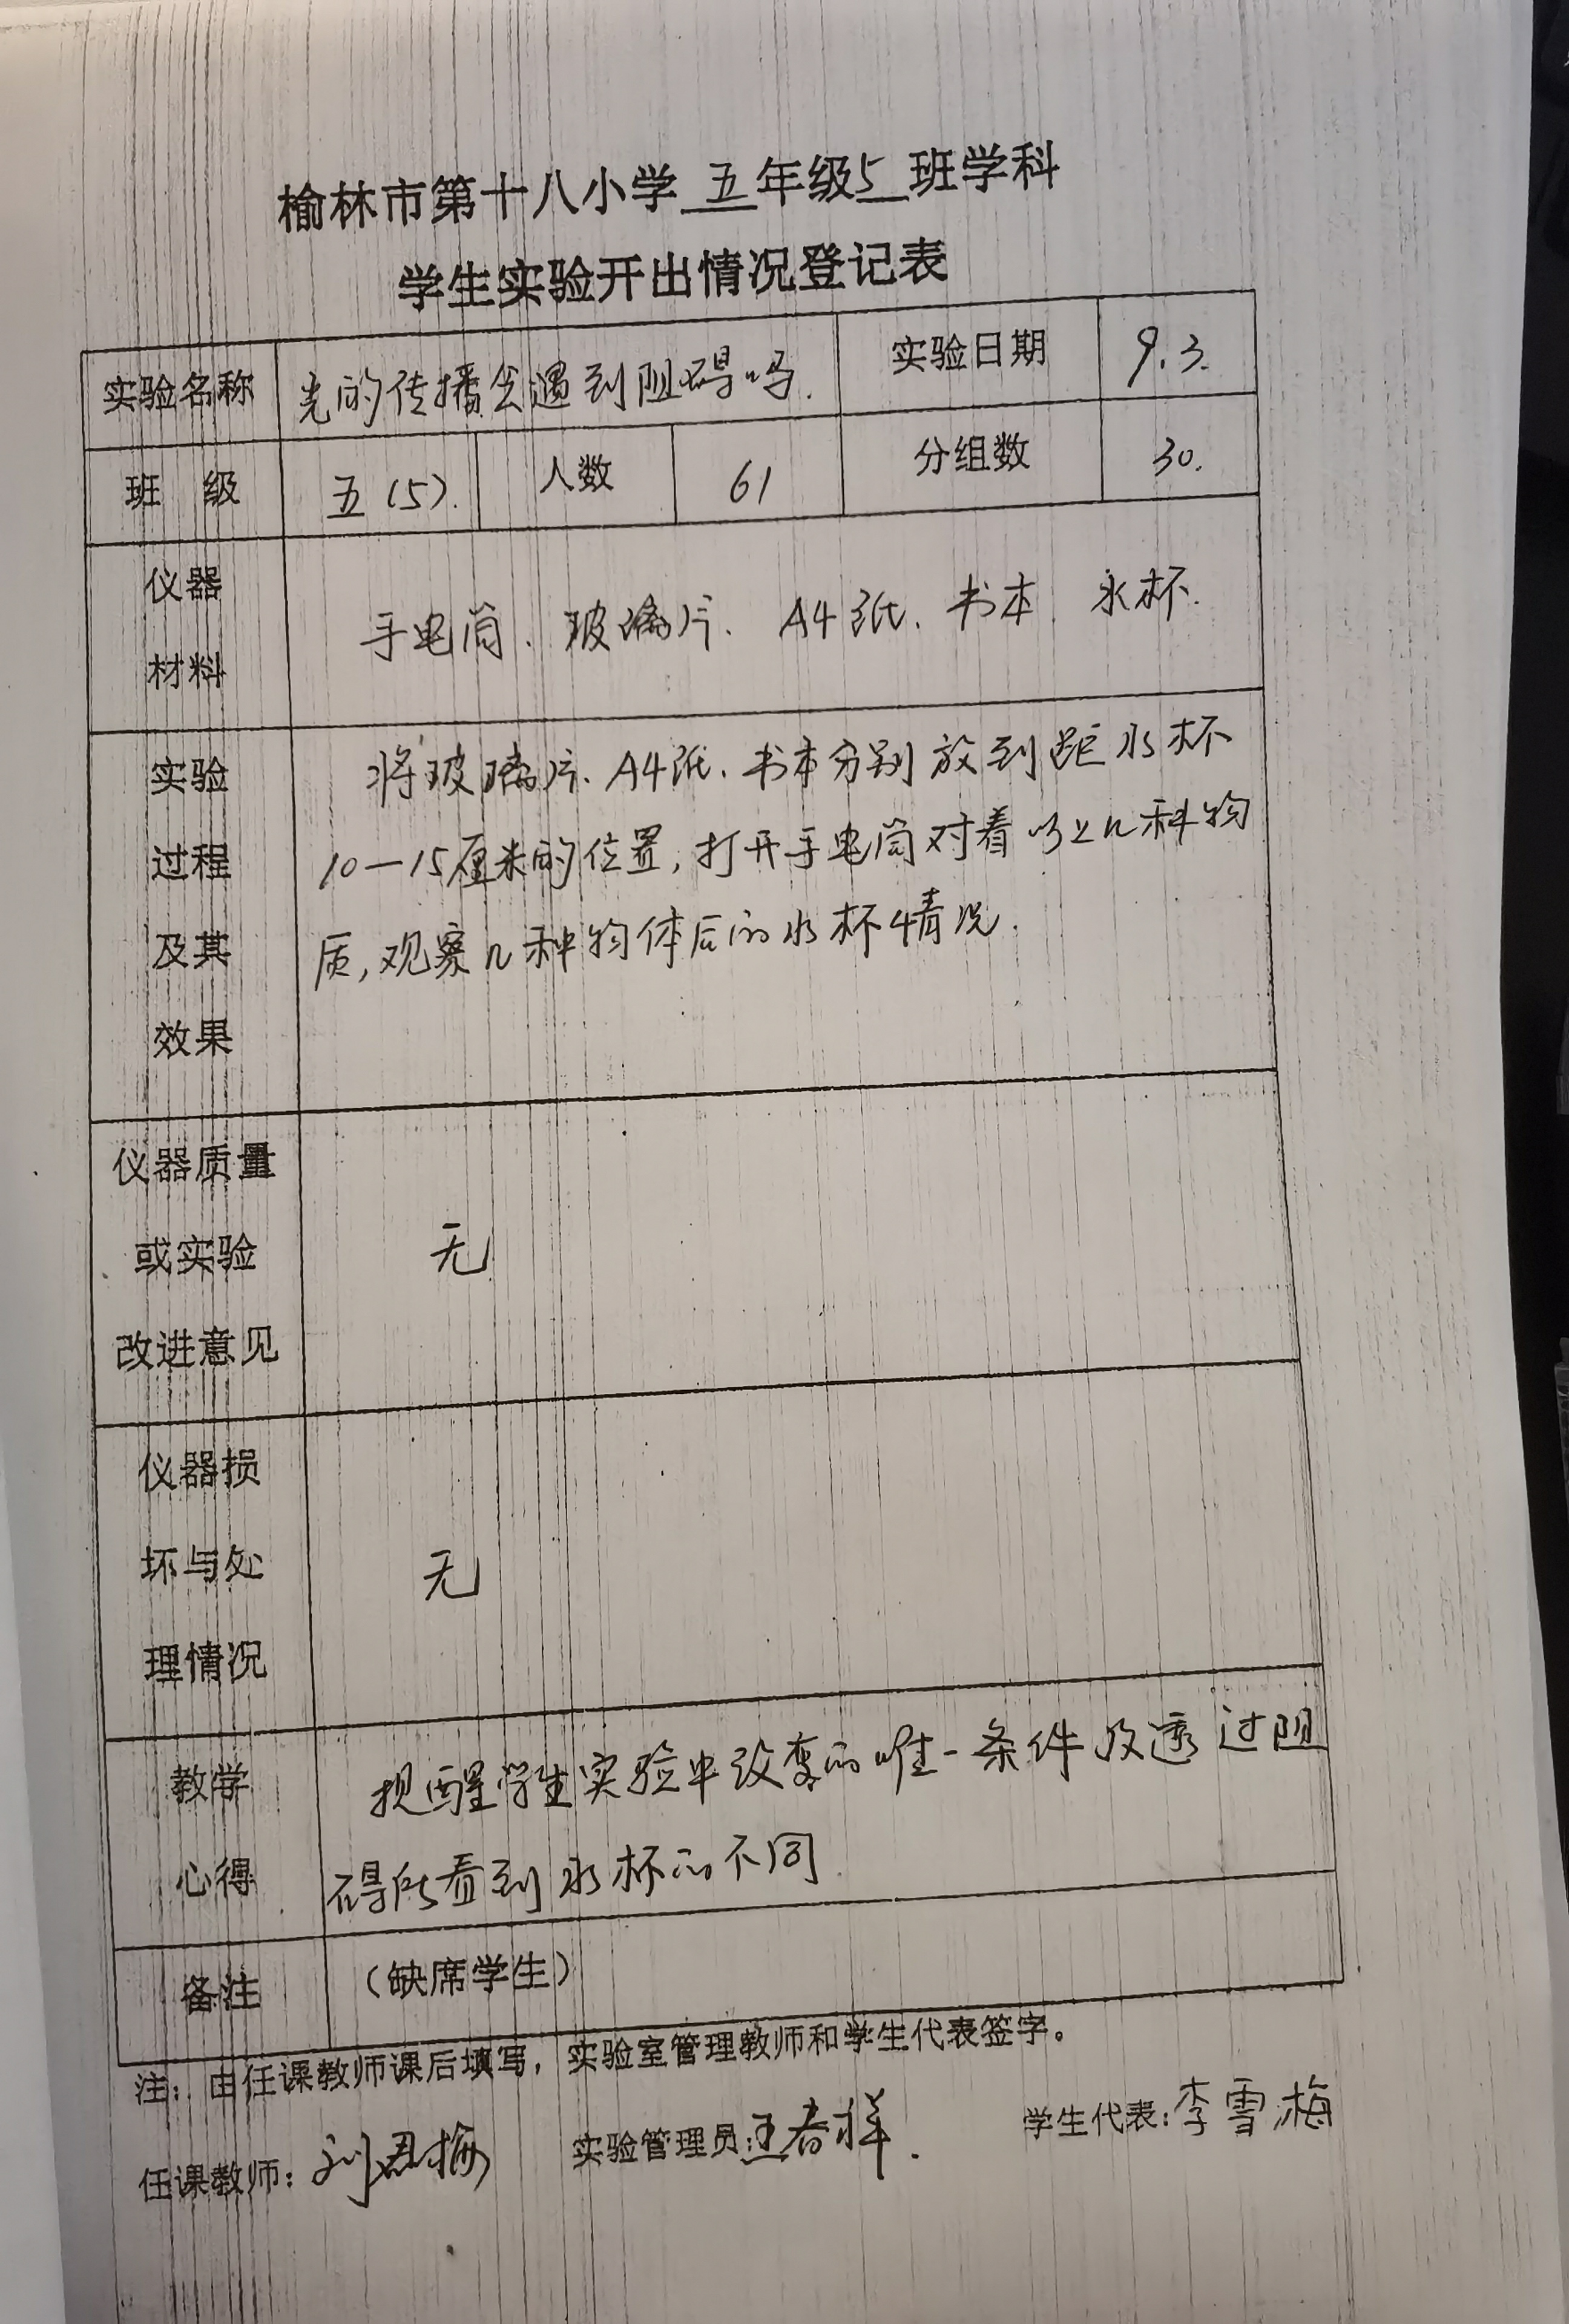 榆林市第十八小学 五 年级 5 班学科
学生实验开出情况登记表
实验名称 光的传播会遇到阻碍吗. 实验日期 9.3.
班 级 五(5). 人数 61 分组数 30.
仪器
材料
手电筒、玻璃片、A4纸、书本、水杯.
实验
过程
及其
效果
将玻璃片、A4纸、书本分别放到距水杯
10—15厘米的位置,打开手电筒对着以上几种物
质,观察几种物体后的水杯情况.
仪器质量
或实验
改进意见
无
仪器损
坏与处
理情况
无
教学
心得
提醒学生实验中改变的唯一条件及透过阻
碍所看到水杯的不同.
备注 (缺席学生)
注:由任课教师课后填写,实验室管理教师和学生代表签字。
任课教师: 实验管理员: 学生代表:李雪梅